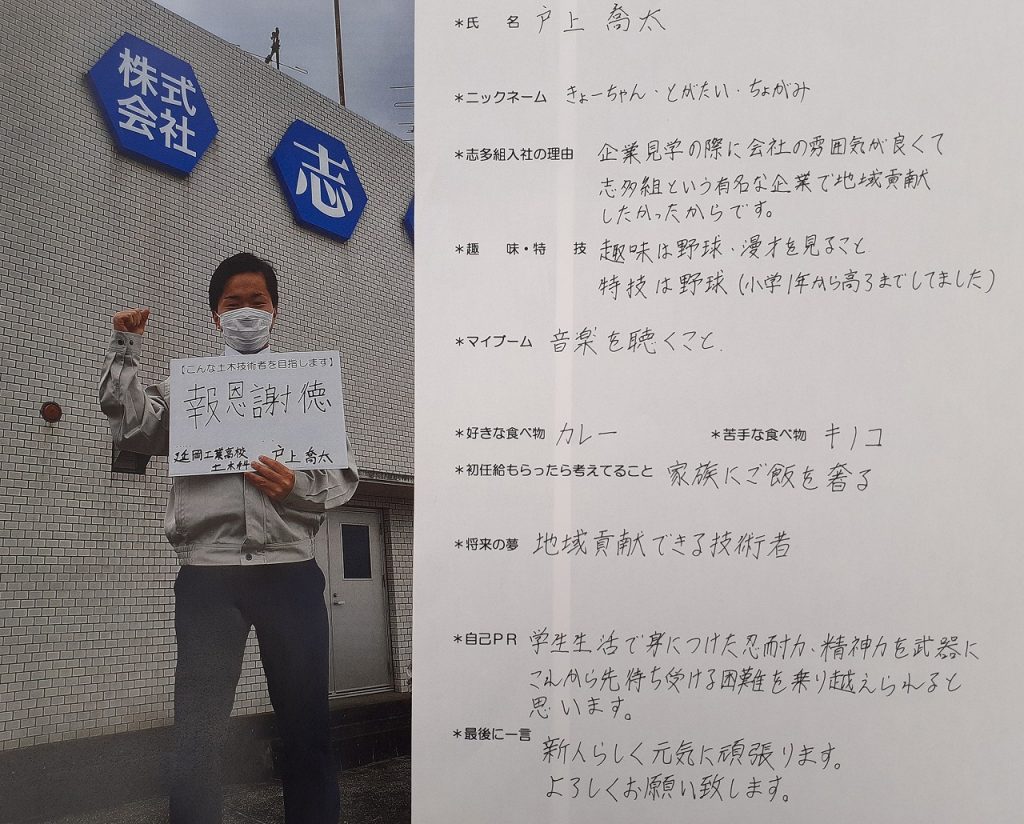 株式
会社
志
【こんな土木技術者を目指します】
報恩謝徳
延岡工業高校
土木科 戸上喬太
*氏 名 戸上 喬太
*ニックネーム きょーちゃん・とがたい・ちょがみ
*志多組入社の理由 企業見学の際に会社の雰囲気が良くて
志多組という有名な企業で地域貢献
したかったからです。
*趣 味・特 技 趣味は野球・漫才を見ること
特技は野球(小学1年から高3までしてました)
*マイブーム 音楽を聴くこと.
*好きな食べ物 カレー *苦手な食べ物 キノコ
*初任給もらったら考えてること 家族にご飯を奢る
*将来の夢 地域貢献できる技術者
*自己PR 学生生活で身につけた忍耐力、精神力を武器に
これから先待ち受ける困難を乗り越えられると
思います。
*最後に一言 新人らしく元気に頑張ります。
よろしくお願い致します。